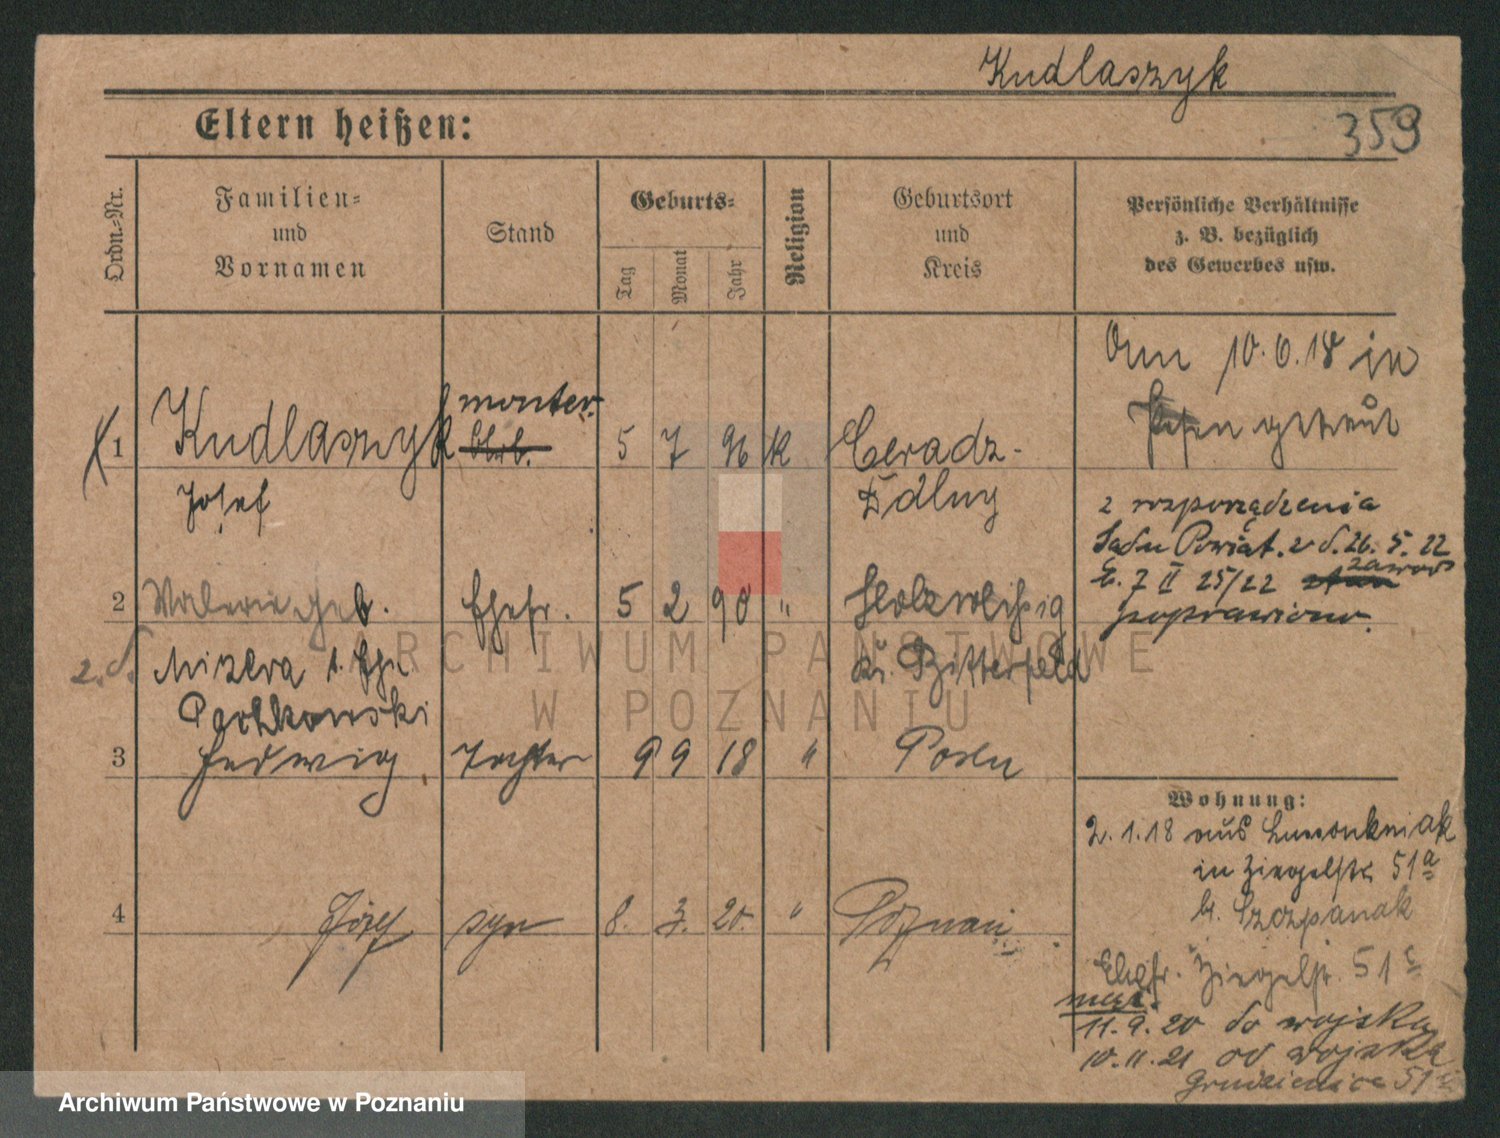 Kudlaszyk
359
Eltern heißen:
Ordn.-Nr.
Familien-
und
Vornamen
Stand
Geburts-
Tag
Monat
Jahr
Religion
Geburtsort
und
Kreis
Persönliche Verhältnisse
z. B. bezüglich
des Gewerbes usw.
1 Kudlaszyk monter. 5 7 96 K Ceradz-
Josef Ddlny
Am 10.6.18 in
Posen getraut
z rozporządzenia
Sądu Powiat. z d. 26. 5. 22
E. 7 II 25/22 zawód
poprawiono.
2 Walerie geb. Ehefr. 5 2 90 " Holzweißig
2. d. Mizera 1. Ehe Kr. Bitterfeld
3 Hedwig Tochter 9 9 18 " Posen
4 Józef syn 8. 3. 20. " Poznań
Wohnung:
2.1.18 aus
in Ziegelstr. 51a
b. Szczpanak
Ehefr. Ziegelstr. 51c
mąż.
11.9.20 do wojska
10.11.21 od wojska
Grudzieniec 51
ARCHIWUM PAŃSTWOWE
W POZNANIU
Archiwum Państwowe w Poznaniu